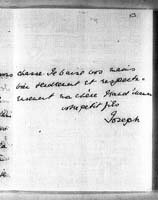 chasse. Je baise vos mains
bien tendrement et respectu-
eusement ma chère Grand'
votre petit fils
Joseph